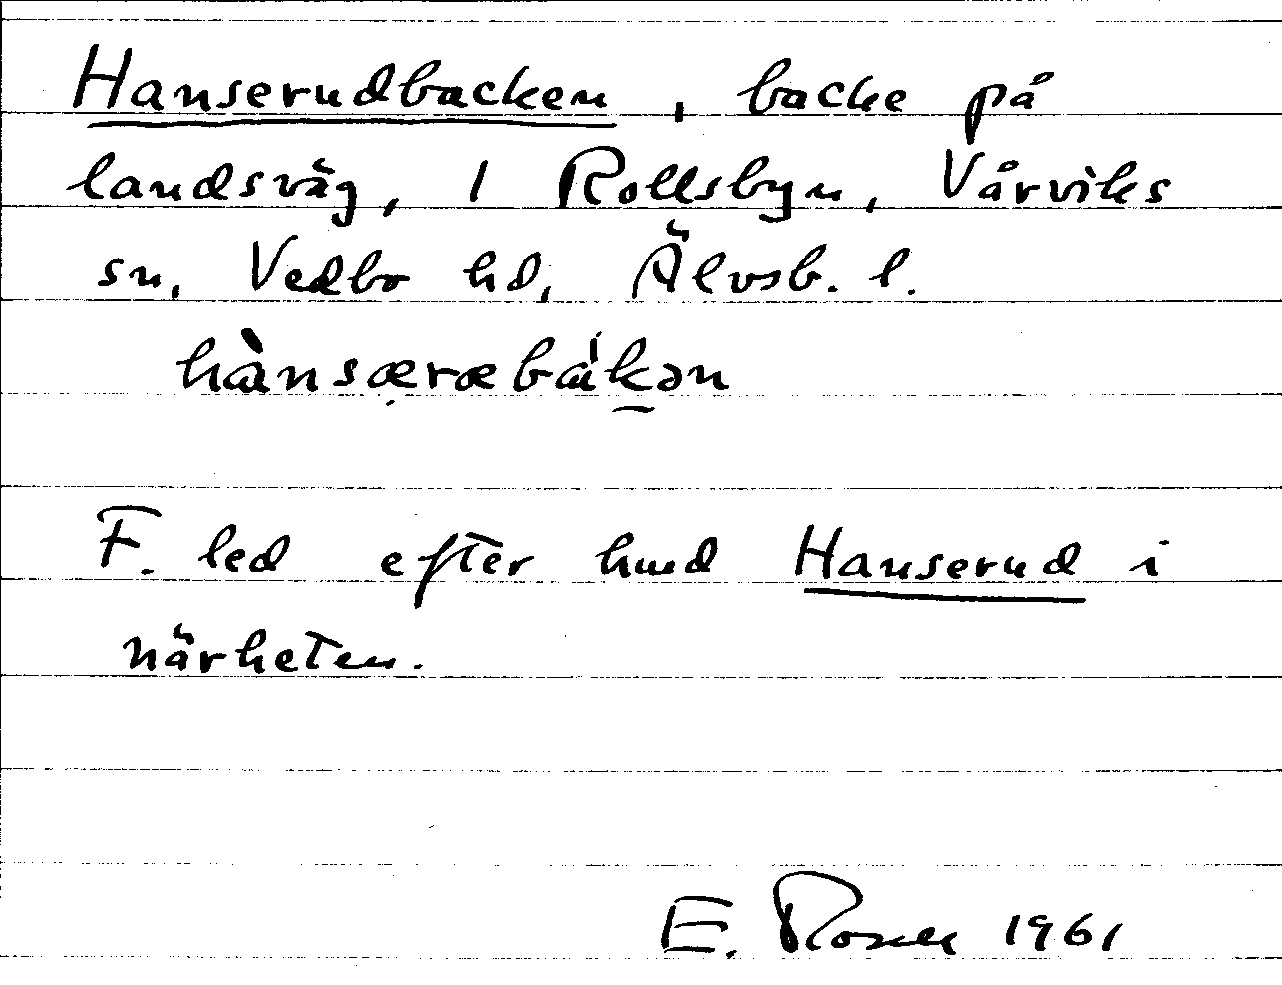 Hanserudbacken, backe på
landsväg, 1 Rollsbyn, Vårviks
sn, Vedbo hd, Älvsb. l.
hànsæræbákən
F. led efter hmd Hanserud i
närheten.
E. Rosell 1961